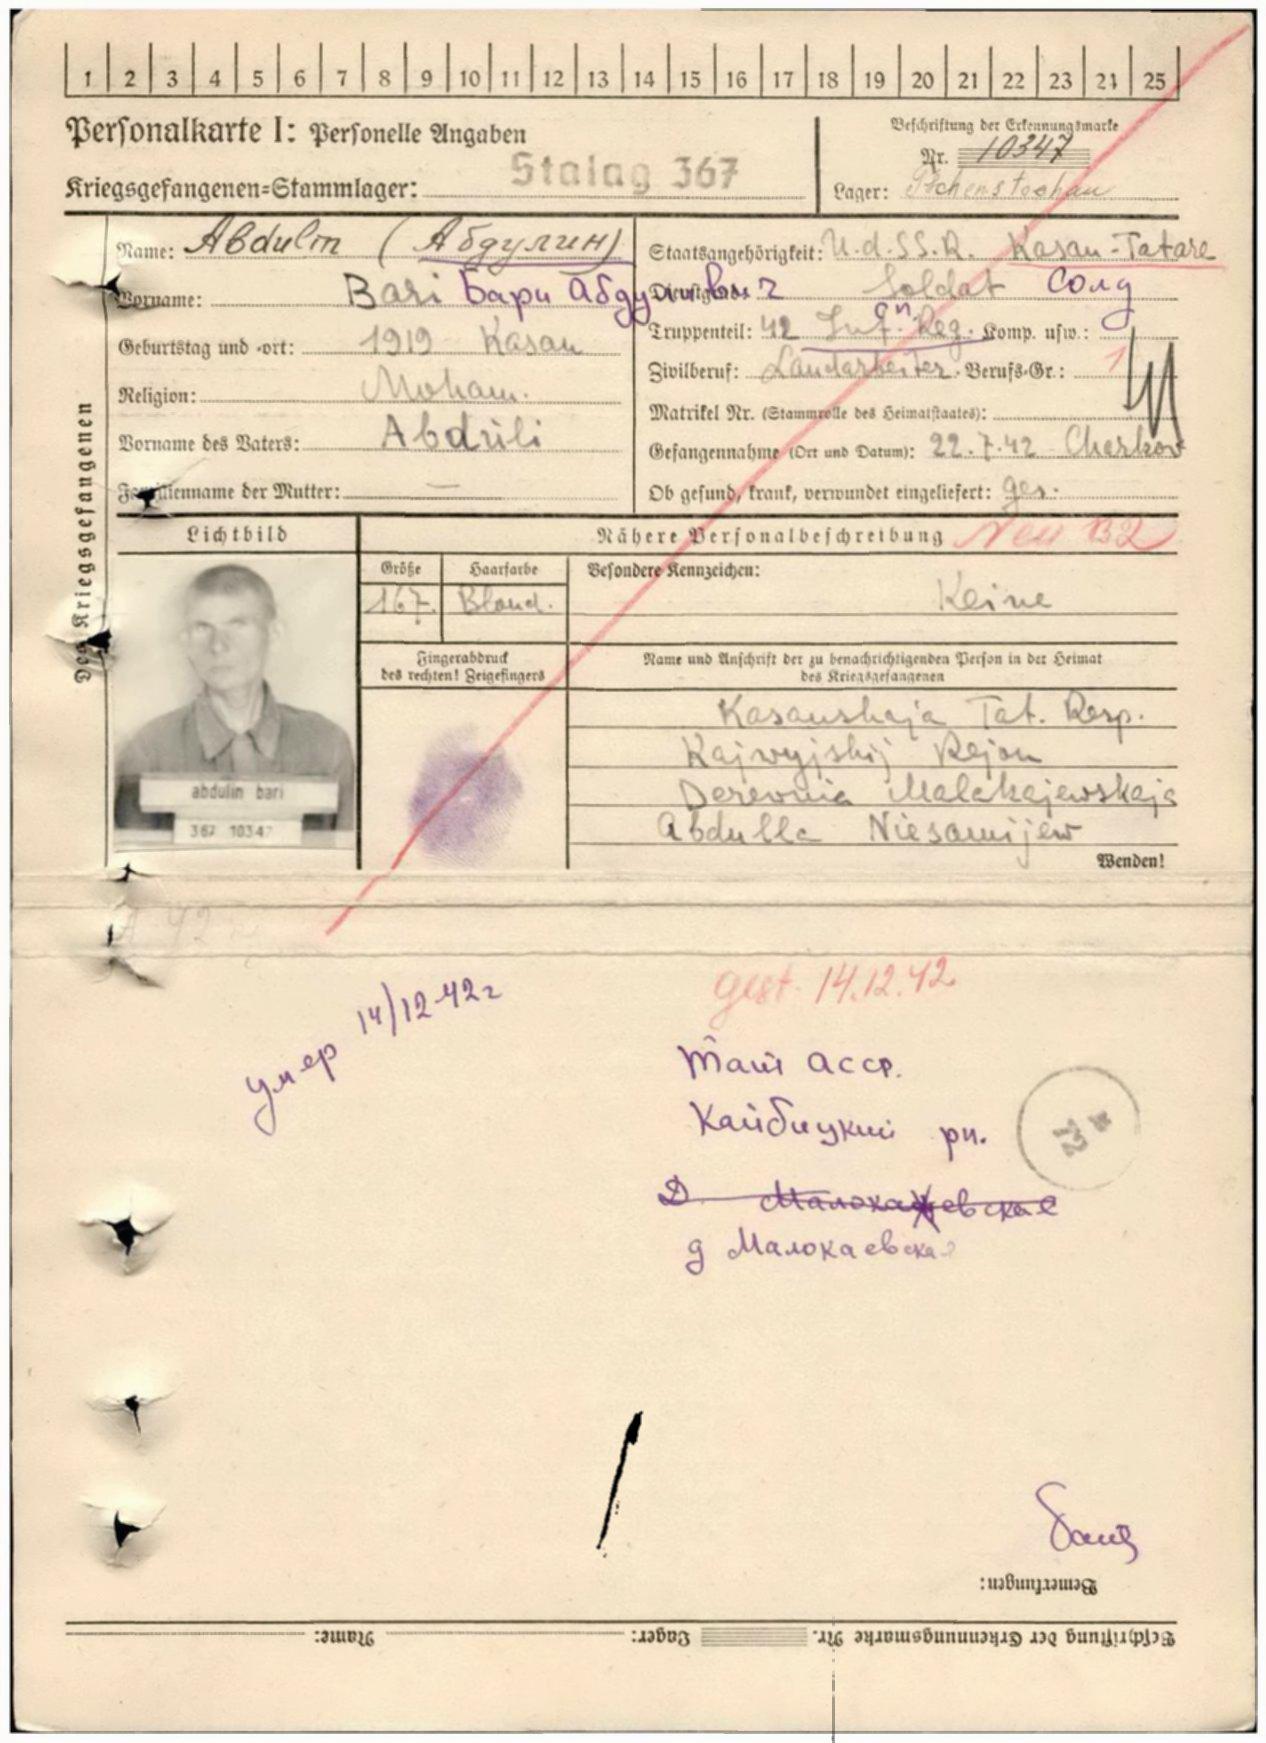 1 2 3 4 5 6 7 8 9 10 11 12 13 14 15 16 17 18 19 20 21 22 23 24 25
Personalkarte I: Personelle Angaben
Kriegsgefangenen=Stammlager: Stalag 367
Beschriftung der Erkennungsmarke
Nr. 10347
Lager: Tschenstochau
Des Kriegsgefangenen
Name: Abdulin (Абдулин)
Vorname: Bari Бари
Geburtstag und -ort: 1919 Kasan
Religion: Moham.
Vorname des Vaters: Abdüli
Familienname der Mutter: —
Staatsangehörigkeit: U.d.SS.R. Kasan-Tatare
Dienstgrad: Soldat Солд
Truppenteil: 42 Inf. Reg. Komp. usw.:
сп.
Zivilberuf: Landarbeiter Berufs-Gr.: 1
Matrikel Nr. (Stammrolle des Heimatstaates):
Gefangennahme (Ort und Datum): 22.7.42 Charkow
Ob gesund, krank, verwundet eingeliefert: ges.
Lichtbild
Nähere Personalbeschreibung Neu 132
Größe Haarfarbe Besondere Kennzeichen:
167. Blond. Keine
Fingerabdruck
des rechten! Zeigefingers
Name und Anschrift der zu benachrichtigenden Person in der Heimat
des Kriegsgefangenen
Kasanskaja Tat. Resp.
Kajwyjskij Rejon
Derewnia Malakajewskaja
Abdulla Niesamijew
Wenden!
abdulin bari
367 10347
умер 14/12-42г
gest. 14.12.42
Тат АССР.
Кайбицкий рн.
Д Малокаевская
д Малокаевская
72
Bemerkungen:
Beschriftung der Erkennungsmarke Nr. Lager: Name: